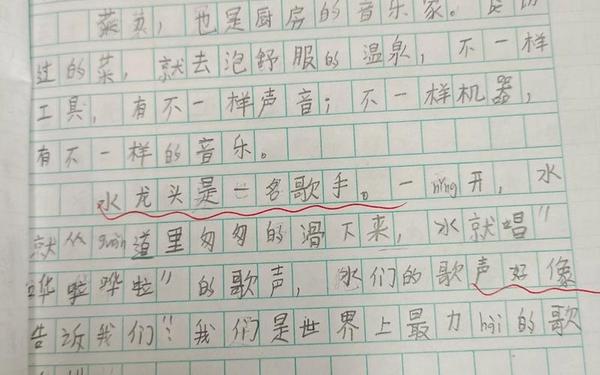 菜　，也是厨房的音乐家。
过的菜，就去泡舒服的温泉，不一样
工具，有不一样声音；不一样机器，
有不一样的音乐。
水龙头是一名歌手。一níng开，水
就从guǎn道里匆匆的滑下来，水就唱“
哗啦哗啦”的歌声，水们的歌声好像
告诉我们“：我们是世界上最力hài的歌